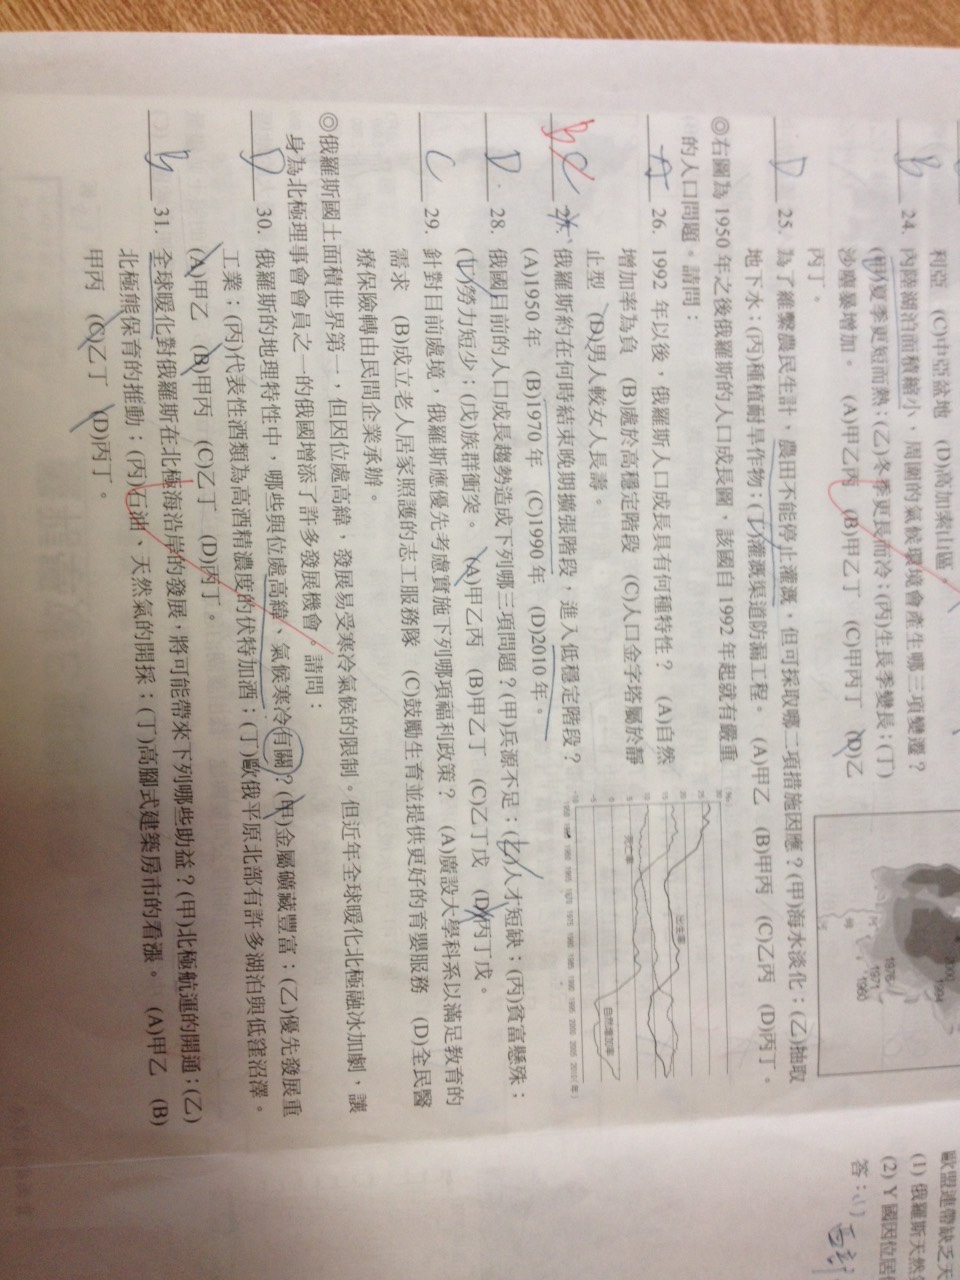 利亞 (C)中亞盆地 (D)高加索山區。
B 24. 內陸湖泊面積縮小，周圍的氣候環境會產生哪三項變遷？
(甲)夏季更短而熱；(乙)冬季更長而冷；(丙)生長季變長；(丁)
沙塵暴增加。 (A)甲乙丙 (B)甲乙丁 (C)甲丙丁 (D)乙
丙丁。
D 25. 為了維繫農民生計，農田不能停止灌溉，但可採取哪二項措施因應？(甲)海水淡化；(乙)抽取
地下水；(丙)種植耐旱作物；(丁)灌溉渠道防漏工程。 (A)甲乙 (B)甲丙 (C)乙丙 (D)丙丁。
◎右圖為 1950 年之後俄羅斯的人口成長圖，該國自 1992 年起就有嚴重
的人口問題。請問：
A 26. 1992 年以後，俄羅斯人口成長具有何種特性？ (A)自然
增加率為負 (B)處於高穩定階段 (C)人口金字塔屬於靜
止型 (D)男人較女人長壽。
B C 27. 俄羅斯約在何時結束晚期擴張階段，進入低穩定階段？
(A)1950 年 (B)1970 年 (C)1990 年 (D)2010 年。
D 28. 俄國目前的人口成長趨勢造成下列哪三項問題？(甲)兵源不足；(乙)人才短缺；(丙)貧富懸殊；
(丁)勞力短少；(戊)族群衝突。 (A)甲乙丙 (B)甲乙丁 (C)乙丁戊 (D)丙丁戊。
C 29. 針對目前處境，俄羅斯應優先考慮實施下列哪項福利政策？ (A)廣設大學科系以滿足教育的
需求 (B)成立老人居家照護的志工服務隊 (C)鼓勵生育並提供更好的育嬰服務 (D)全民醫
療保險轉由民間企業承辦。
◎俄羅斯國土面積世界第一，但因位處高緯，發展易受寒冷氣候的限制。但近年全球暖化北極融冰加劇，讓
身為北極理事會會員之一的俄國增添了許多發展機會。請問：
D 30. 俄羅斯的地理特性中，哪些與位處高緯、氣候寒冷有關？(甲)金屬礦藏豐富；(乙)優先發展重
工業；(丙)代表性酒類為高酒精濃度的伏特加酒；(丁)歐俄平原北部有許多湖泊與低窪沼澤。
(A)甲乙 (B)甲丙 (C)乙丁 (D)丙丁。
B 31. 全球暖化對俄羅斯在北極海沿岸的發展，將可能帶來下列哪些助益？(甲)北極航運的開通；(乙)
北極熊保育的推動；(丙)石油、天然氣的開採；(丁)高腳式建築房市的看漲。 (A)甲乙 (B)
甲丙 (C)乙丁 (D)丙丁。
出生率
死亡率
自然增加率
1971
1960
歐盟連帶缺乏天
(1) 俄羅斯天然
(2) Y 國因位居
答：(1)